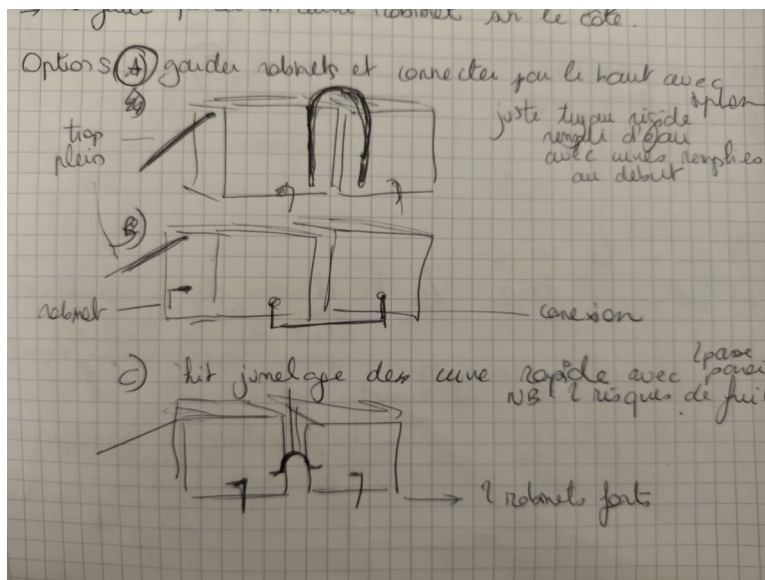 sur le côté.
Options A garder robinets et connecter par le haut avec
siphon
juste tuyau rigide
trop
plein
rempli d'eau
avec cuves remplies
au début
B)
robinet
conexion
C) kit jumelage de cuve rapide avec 2 passe
paroi
NB 2 risques de fui
2 robinets forts